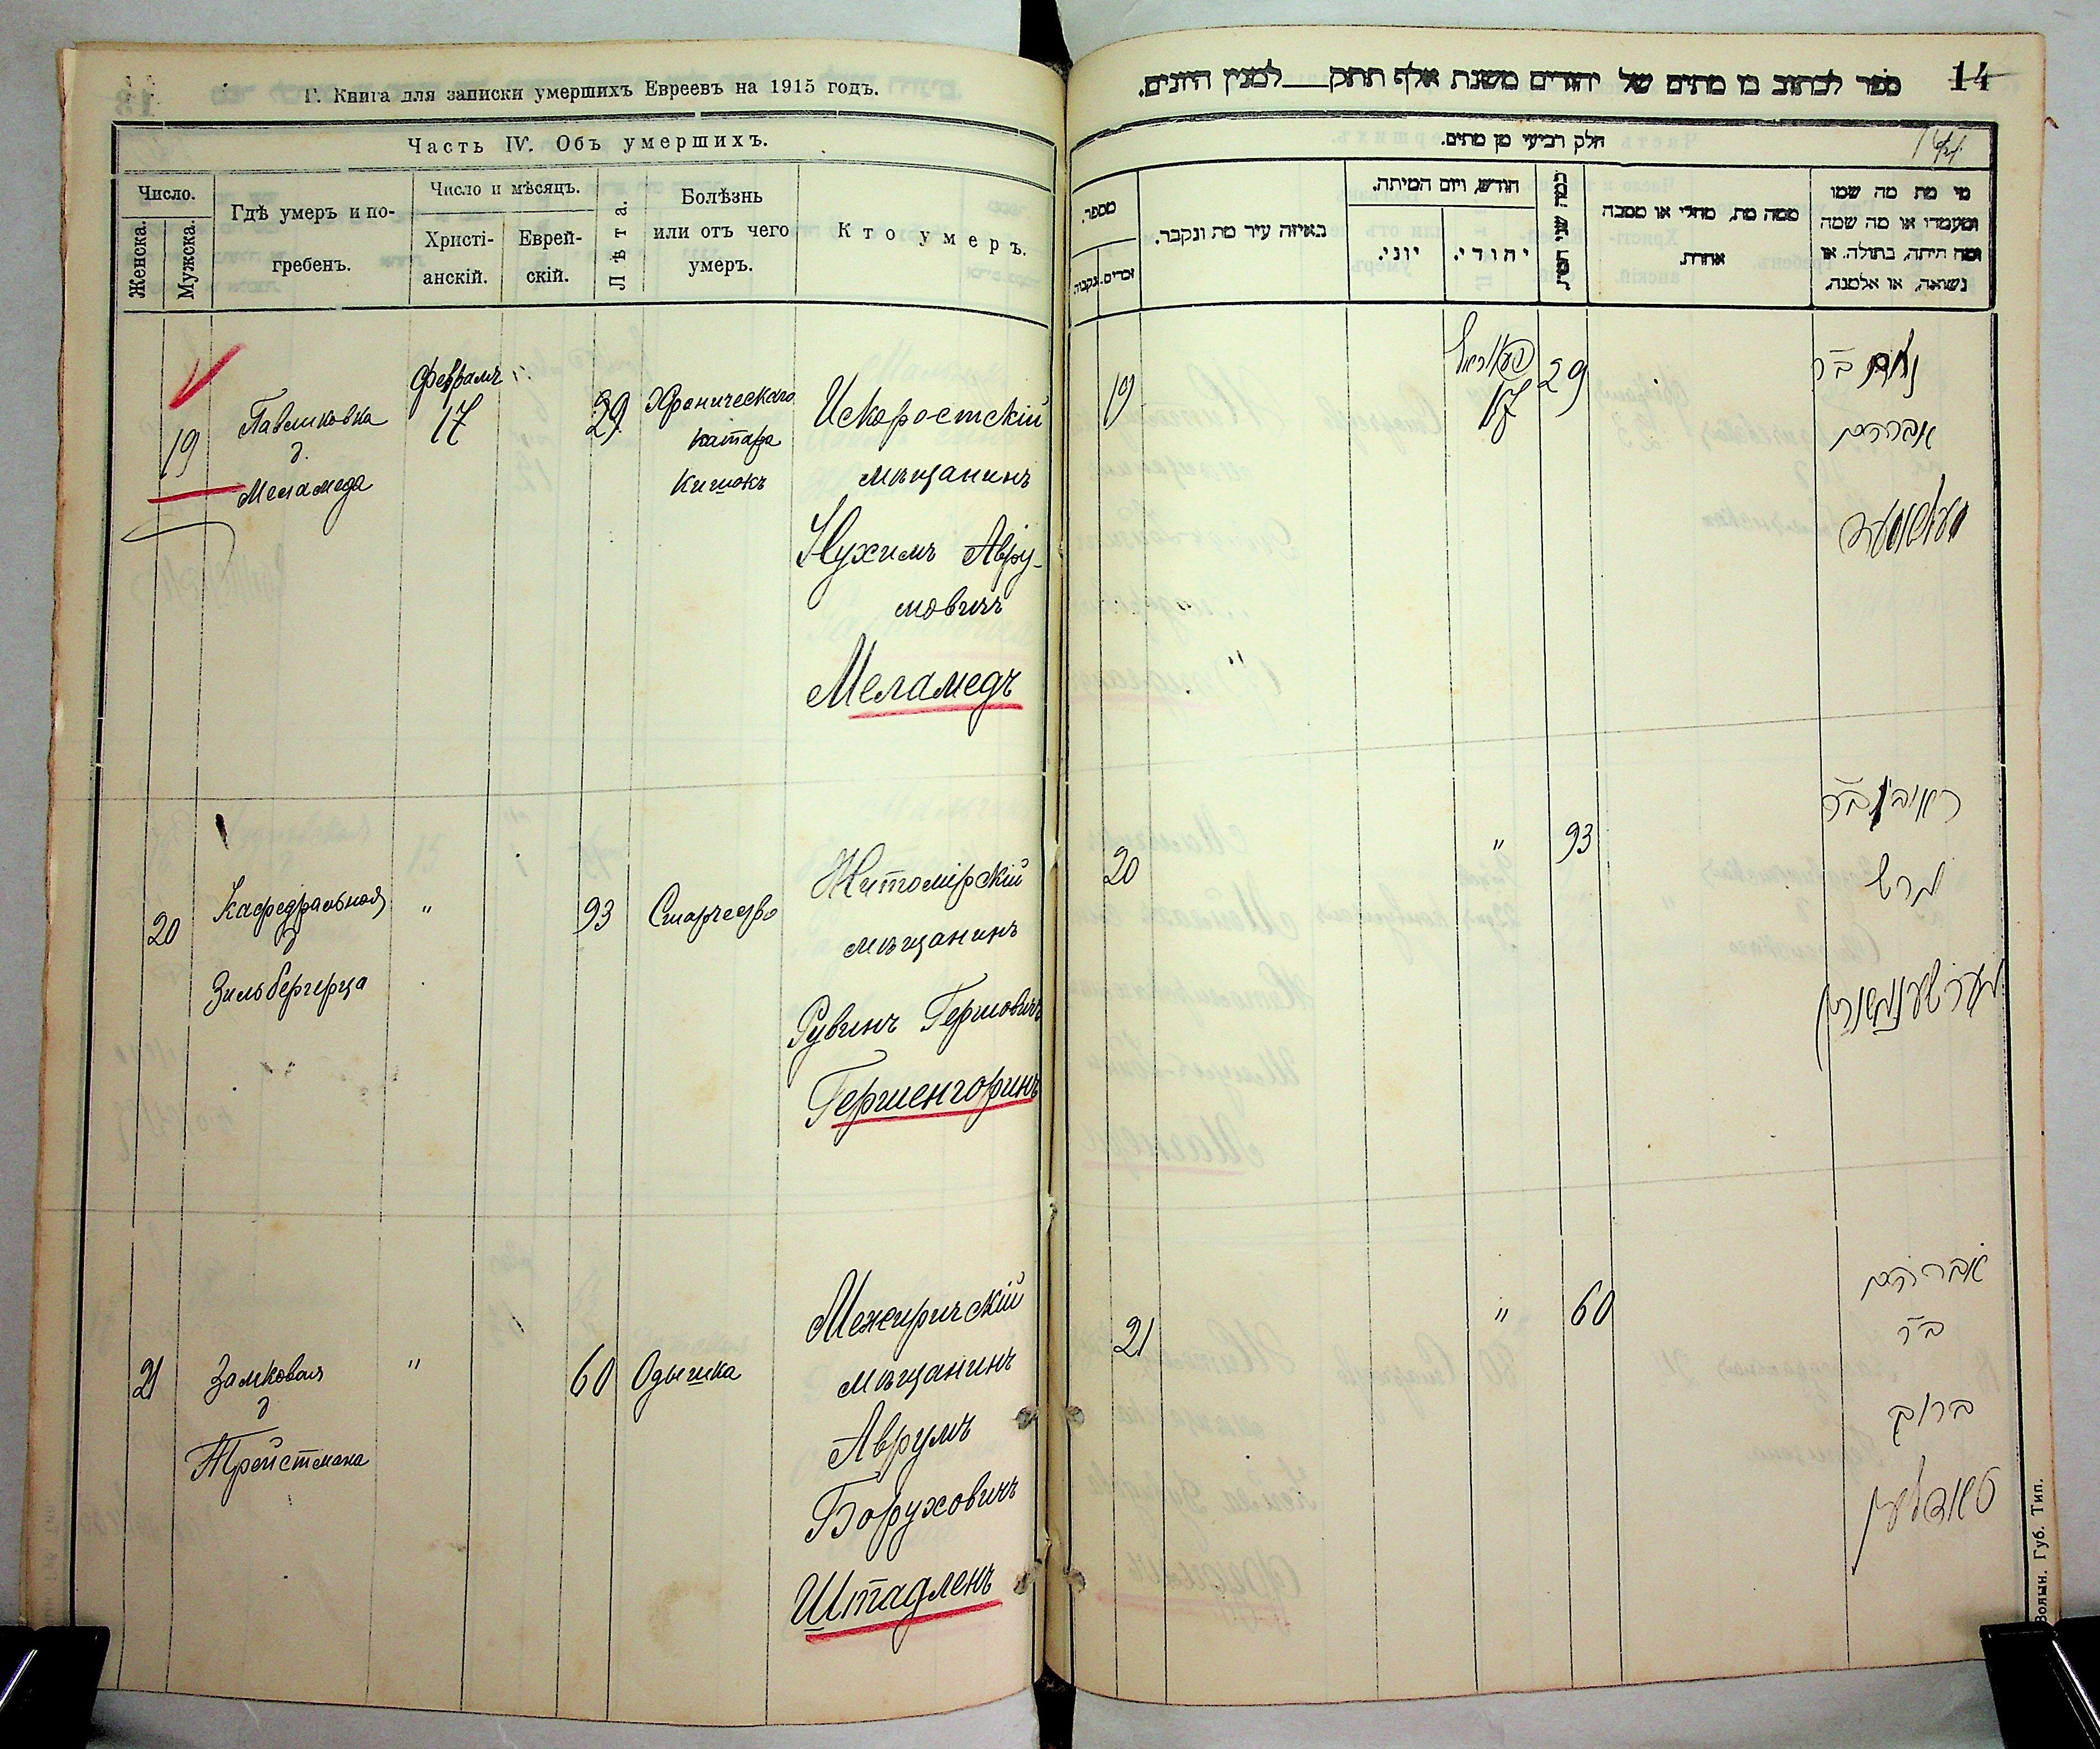 Г. Книга для записки умершихъ Евреевъ на 1915 годъ.
Часть IV. Объ умершихъ.
Число.
Женска.
Мужска.
Гдѣ умеръ и по-
гребенъ.
Число и мѣсяцъ.
Христі-
анскій.
Еврей-
скій.
Лѣта.
Болѣзнь
или отъ чего
умеръ.
Кто умеръ.
19
Павликовка
д.
Меламеда
Февраль
17
29
Хроническаго
катара
кишокъ
Искоростскій
мѣщанинъ
Нухимъ Авру-
мовичъ
Меламедъ
20
Кафедральная
д
Зильбергерца
"
93
Старчество
Житомірскій
мѣщанинъ
Рувинъ Гершовичъ
Гершенгоринъ
21
Замковая
д
Тройстмана
"
60
Одышка
Межиричскій
мѣщанинъ
Аврумъ
Боруховичъ
Штадленъ
14
ספר לכתוב בו מתים של יהודים משנת אלף תתק למנין היונים.
חלק רביעי מן מתים.
מספר.
זכרים.
נקבות.
באיזה עיר מת ונקבר.
חודש, ויום המיתה.
יוני.
יהודי.
כמה שני המת
ממה מת, מחלי או מסבה
אחרת.
מי מת מה שמו
ומעמדו או מה שמה
ומה היתה, בתולה. או
נשואה, או אלמנה.
19
17
29
נחום ב״ר
אברהם
מעלאמעד
20
"
93
ראובין ב״ר
הרש
הערשענהארין
21
"
60
אברהם
ב״ר
ברוך
שטאדלען
Волын. Губ. Тип.